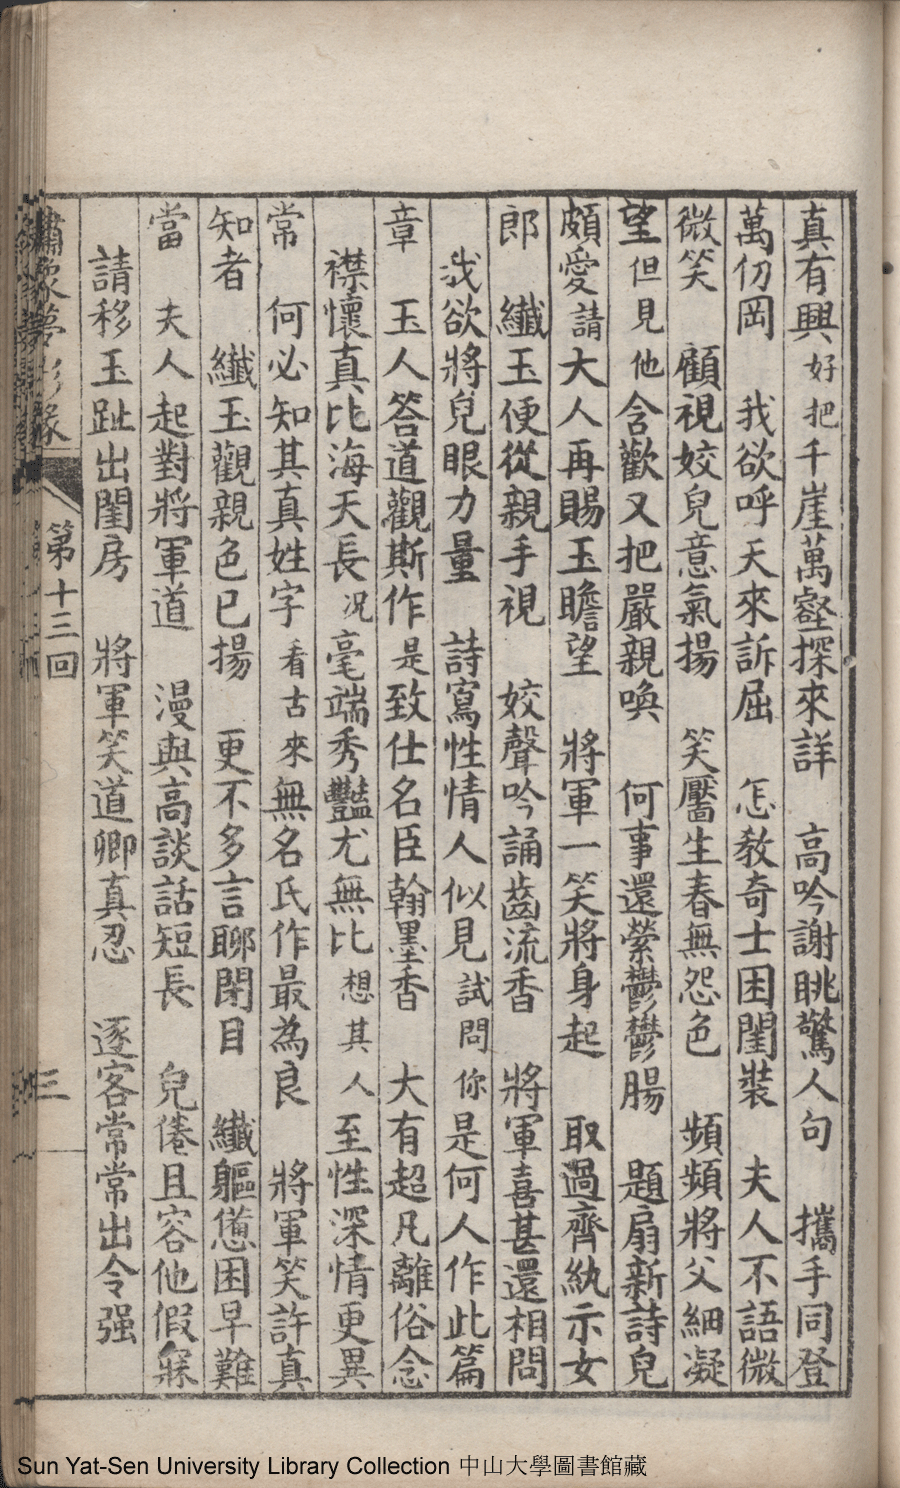 真有興好把千崖萬壑探來詳　高吟謝眺驚人句　攜手同登
萬仞岡　我欲呼天來訴屈　怎教奇士困閨裝　夫人不語微
微笑　顧視姣兒意氣揚　笑靨生春無怨色　頻頻將父細凝
望但見他含歡又把嚴親喚　何事還縈鬱鬱腸　題扇新詩兒
頗愛請大人再賜玉瞻望　將軍一笑將身起　取過齊紈示女
郎　纖玉便從親手視　姣聲吟誦齒流香　將軍喜甚還相問
我欲將兒眼力量　詩寫性情人似見試問你是何人作此篇
章　玉人答道觀斯作是致仕名臣翰墨香　大有超凡離俗念
襟懷真比海天長况毫端秀豔尤無比想其人至性深情更異
常　何必知其真姓字看古來無名氏作最為良　將軍笑許真
知者　纖玉觀親色已揚　更不多言聊閉目　纖軀憊困早難
當　夫人起對將軍道　漫與高談話短長　兒倦且容他假寐
請移玉趾出閨房　將軍笑道卿真忍　逐客常常出令强
夢影緣
第十三回
三
Sun Yat-Sen University Library Collection 中山大學圖書館藏